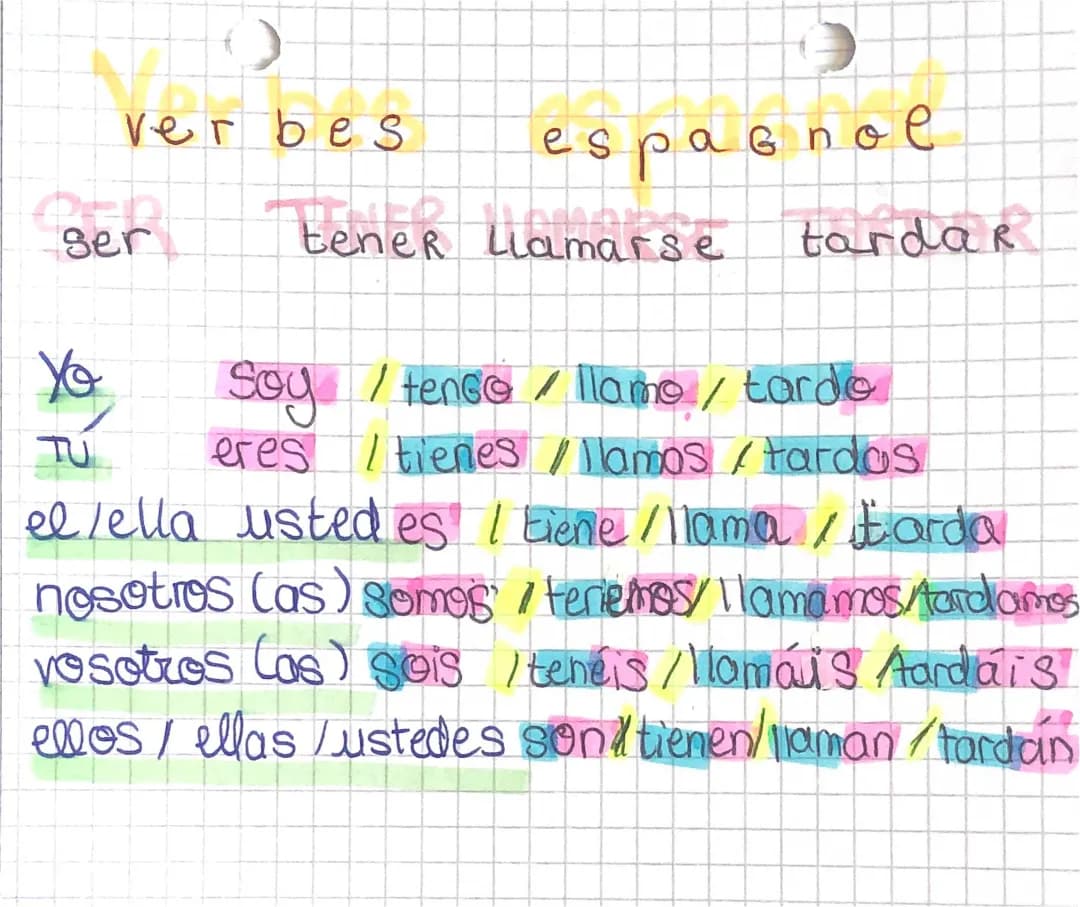 Verbes espagnol
ser tener llamarse tardar
Yo soy / tengo / llamo / tardo
Tú eres / tienes / llamas / tardas
el/ella usted es / tiene / llama / tarda
nosotros (as) somos / tenemos / llamamos / tardamos
vosotros (as) sois / tenéis / llamáis / tardáis
ellos / ellas / ustedes son / tienen / llaman / tardán